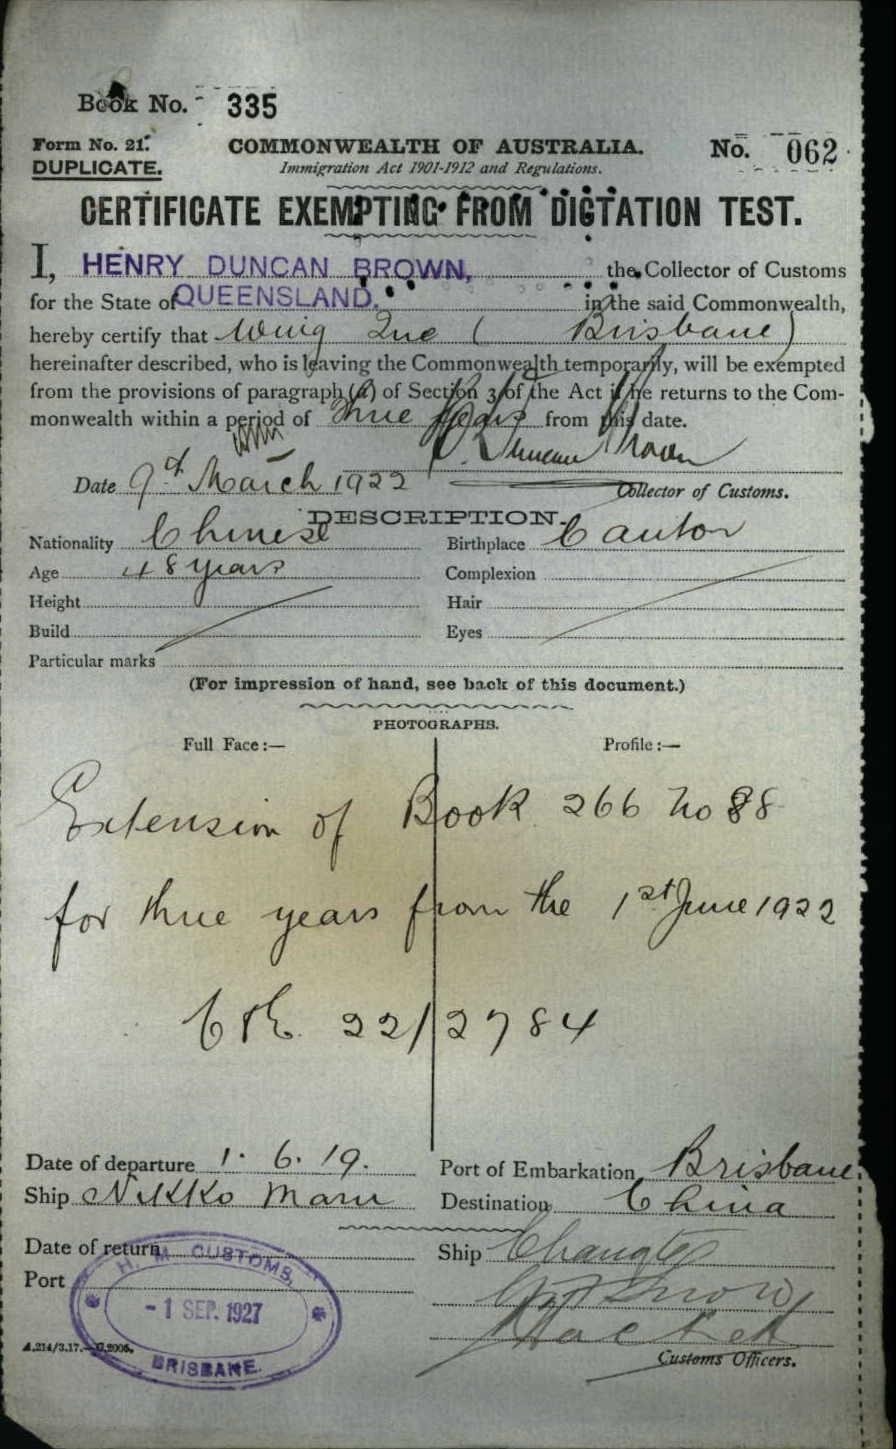 Book No. 335
Form No. 21. COMMONWEALTH OF AUSTRALIA. No. 062
DUPLICATE. Immigration Act 1901-1912 and Regulations.
CERTIFICATE EXEMPTING FROM DICTATION TEST.
I, HENRY DUNCAN BROWN, the Collector of Customs
for the State of QUEENSLAND. in the said Commonwealth,
hereby certify that Wing Que ( Brisbane)
hereinafter described, who is leaving the Commonwealth temporarily, will be exempted
from the provisions of paragraph (a) of Section 3 of the Act if he returns to the Com-
monwealth within a period of three years from this date.
H. Duncan Brown
Date 9th March 1922 Collector of Customs.
DESCRIPTION.
Nationality Chinese Birthplace Canton
Age 48 years Complexion
Height Hair
Build Eyes
Particular marks
(For impression of hand, see back of this document.)
PHOTOGRAPHS.
Full Face :— Profile :—
Extension of Book 266 No 88
for three years from the 1st June 1922
C&E. 22/2784
Date of departure 1. 6. 19. Port of Embarkation Brisbane
Ship Nikko Maru Destination China
Date of return Ship Changte
Port
H. M. CUSTOMS,
- 1 SEP. 1927
BRISBANE.
A.214/3.17.—C.2005.
Customs Officers.